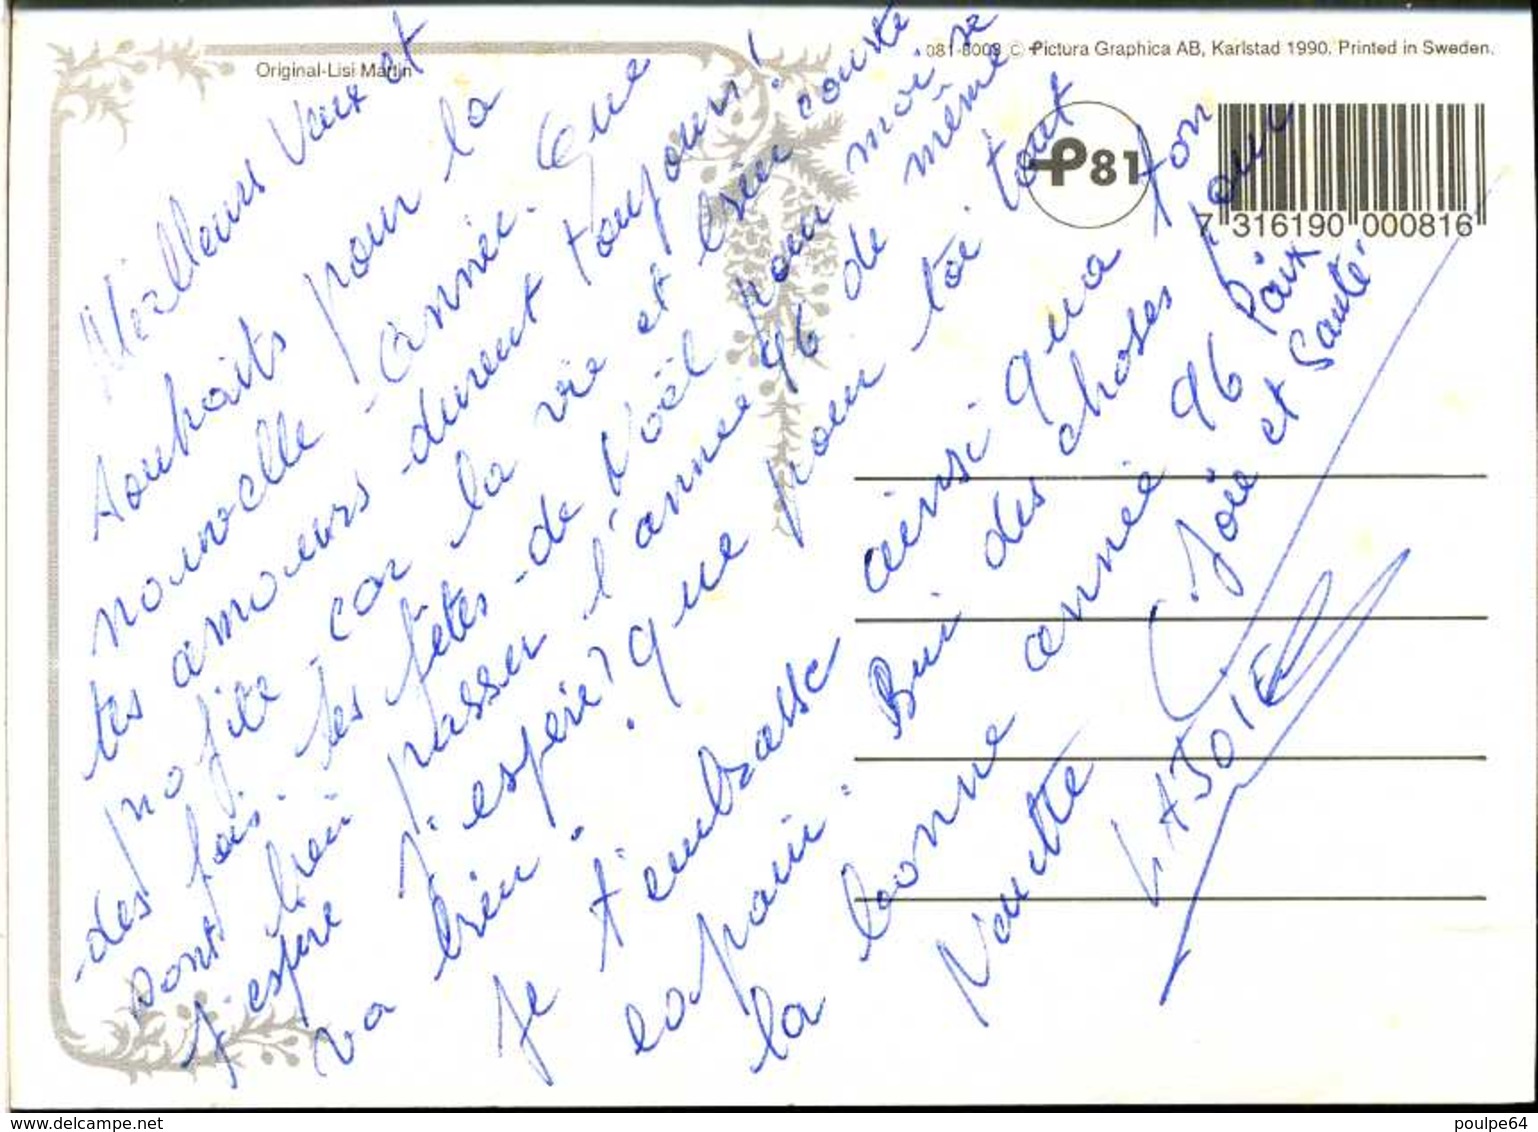 Original-Lisi Martin
081-8008 © Pictura Graphica AB, Karlstad 1990. Printed in Sweden.
P81
7 316190 000816
Meilleurs Vœux et
souhaits pour la
nouvelle année. Que
tes amours durent toujours!
profite car la vie est bien courte
des fois. les fêtes de Noël pour moi se
sont bien passer l'année 96 de même
j'espère j'espère que pour toi tout
va bien.
Je t'embrasse ainsi qua ton
copain. Bui des choses pour
la bonne année 96 Paix
Nanette Joie et Santé
LAJOIE
www.delcampe.net
poulpe64